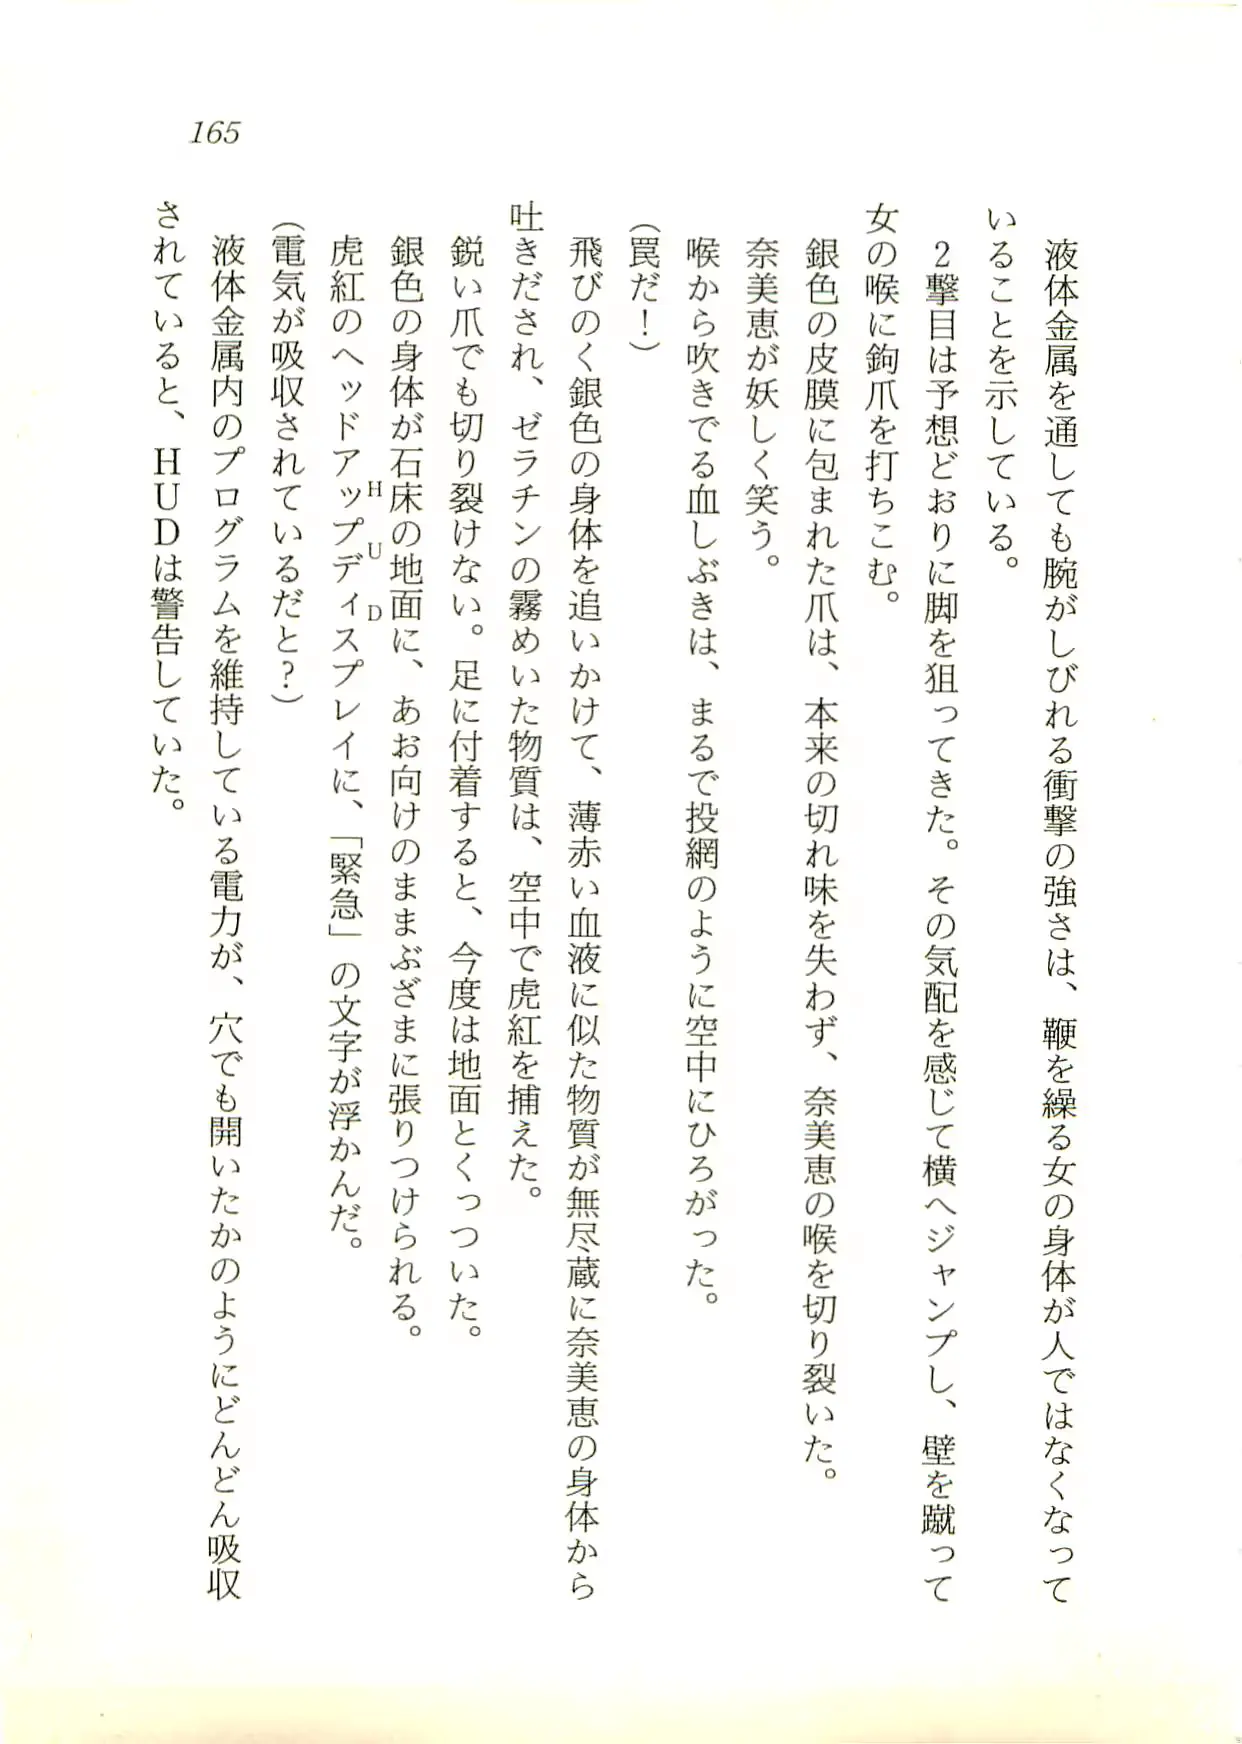 165
　液体金属を通しても腕がしびれる衝撃の強さは、鞭を繰る女の身体が人ではなくなって
いることを示している。
　2撃目は予想どおりに脚を狙ってきた。その気配を感じて横へジャンプし、壁を蹴って
女の喉に鉤爪を打ちこむ。
　銀色の皮膜に包まれた爪は、本来の切れ味を失わず、奈美恵の喉を切り裂いた。
　奈美恵が妖しく笑う。
　喉から吹きでる血しぶきは、まるで投網のように空中にひろがった。
（罠だ！）
　飛びのく銀色の身体を追いかけて、薄赤い血液に似た物質が無尽蔵に奈美恵の身体から
吐きだされ、ゼラチンの霧めいた物質は、空中で虎紅を捕えた。
　鋭い爪でも切り裂けない。足に付着すると、今度は地面とくっついた。
　銀色の身体が石床の地面に、あお向けのままぶざまに張りつけられる。
HUD
　虎紅のヘッドアップディスプレイに、「緊急」の文字が浮かんだ。
（電気が吸収されているだと？）
　液体金属内のプログラムを維持している電力が、穴でも開いたかのようにどんどん吸収
されていると、HUDは警告していた。